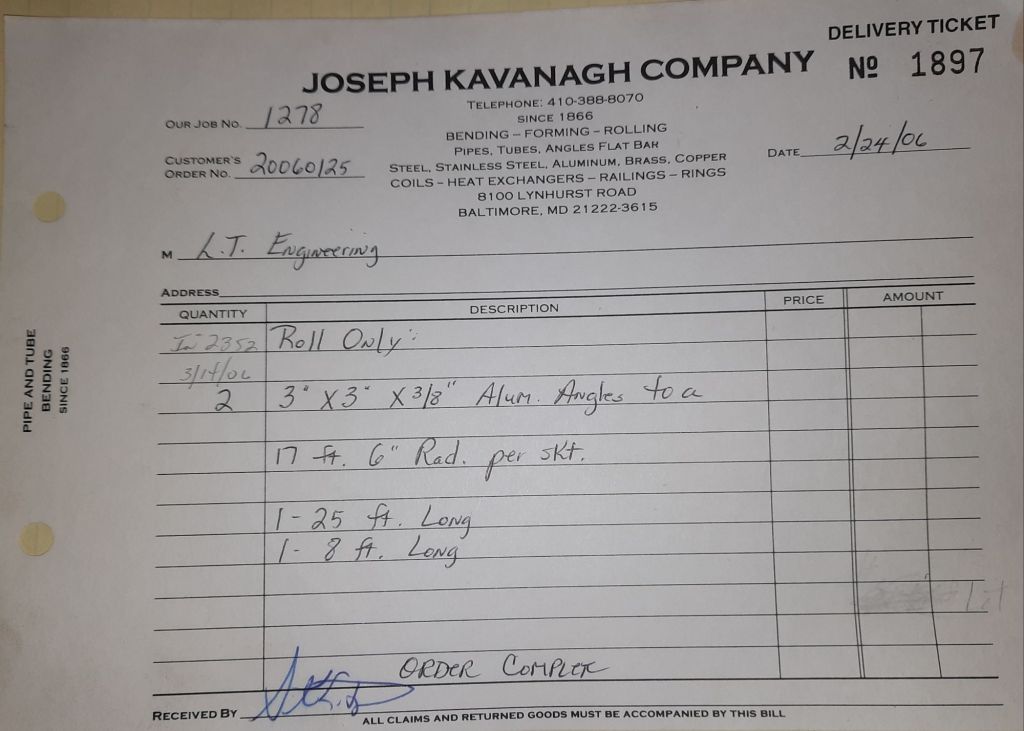 DELIVERY TICKET
JOSEPH KAVANAGH COMPANY
Nº 1897
TELEPHONE: 410-388-8070
SINCE 1866
BENDING – FORMING – ROLLING
PIPES, TUBES, ANGLES FLAT BAR
STEEL, STAINLESS STEEL, ALUMINUM, BRASS, COPPER
COILS – HEAT EXCHANGERS – RAILINGS – RINGS
8100 LYNHURST ROAD
BALTIMORE, MD 21222-3615
OUR JOB NO. 1278
CUSTOMER'S ORDER NO. 20060125
DATE 2/24/06
M L.T. Engineering
ADDRESS
QUANTITY DESCRIPTION PRICE AMOUNT
In 2352 Roll Only:
3/14/06
2 3" X 3" X 3/8" Alum. Angles to a
17 ft. 6" Rad. per skt.
1- 25 ft. Long
1- 8 ft. Long
ORDER COMPLETE
RECEIVED BY
ALL CLAIMS AND RETURNED GOODS MUST BE ACCOMPANIED BY THIS BILL
PIPE AND TUBE
BENDING
SINCE 1866